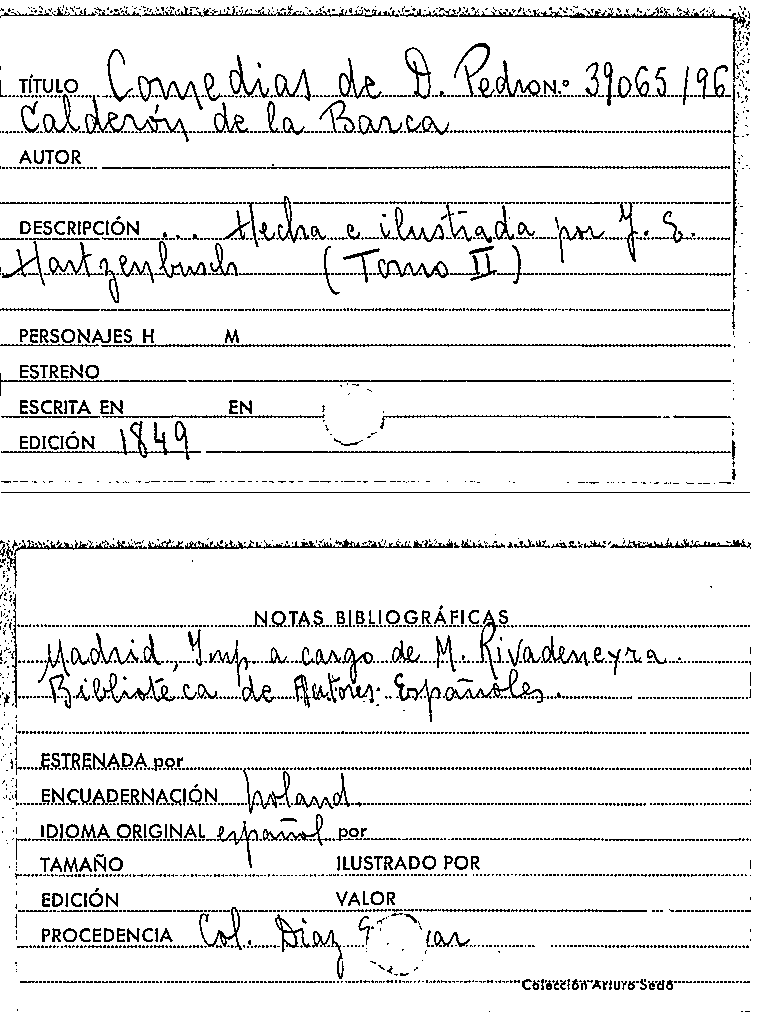 TÍTULO Comedias de D. Pedro N.º 39065/96
Calderón de la Barca
AUTOR
DESCRIPCIÓN ... Hecha e ilustrada por J. E.
Hartzenbusch (Tomo II)
PERSONAJES H M
ESTRENO
ESCRITA EN EN
EDICIÓN 1849
NOTAS BIBLIOGRÁFICAS
Madrid, Imp a cargo de M. Rivadeneyra.
Biblioteca de Autores Españoles.
ESTRENADA por
ENCUADERNACIÓN holand.
IDIOMA ORIGINAL español por
TAMAÑO ILUSTRADO POR
EDICIÓN VALOR
PROCEDENCIA Col. Diaz
Colección Arturo Sedó